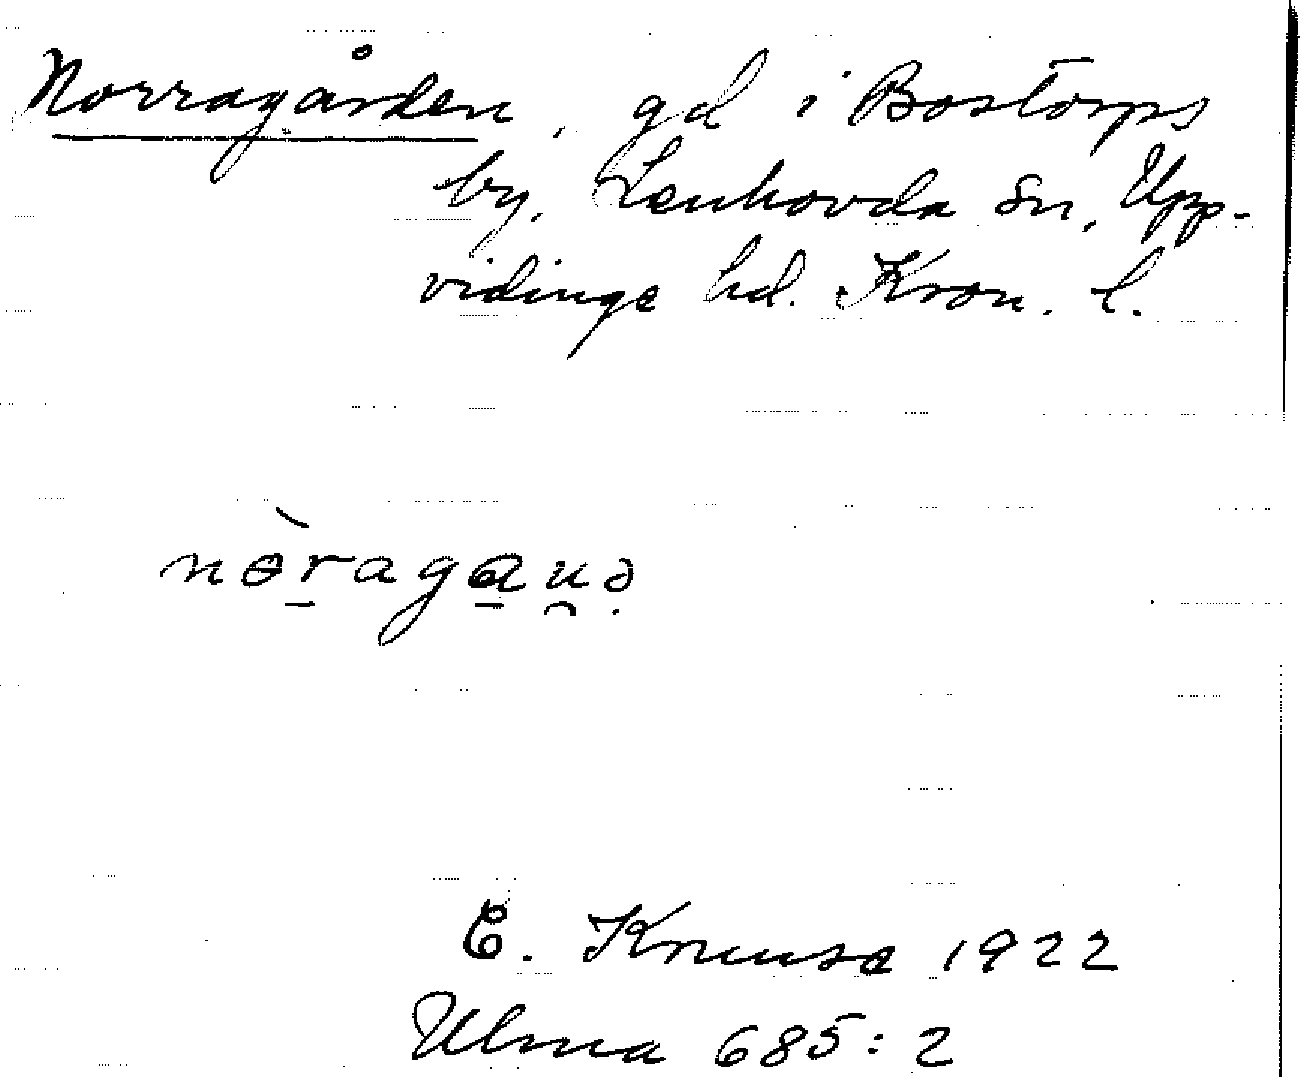 Norragården, gd i Bostorps
by, Lenhovda sn, Upp-
vidinge hd. Kron. l.
nɵ̀ragau̯ə
E. Knuuse 1922
Ulma 685:2